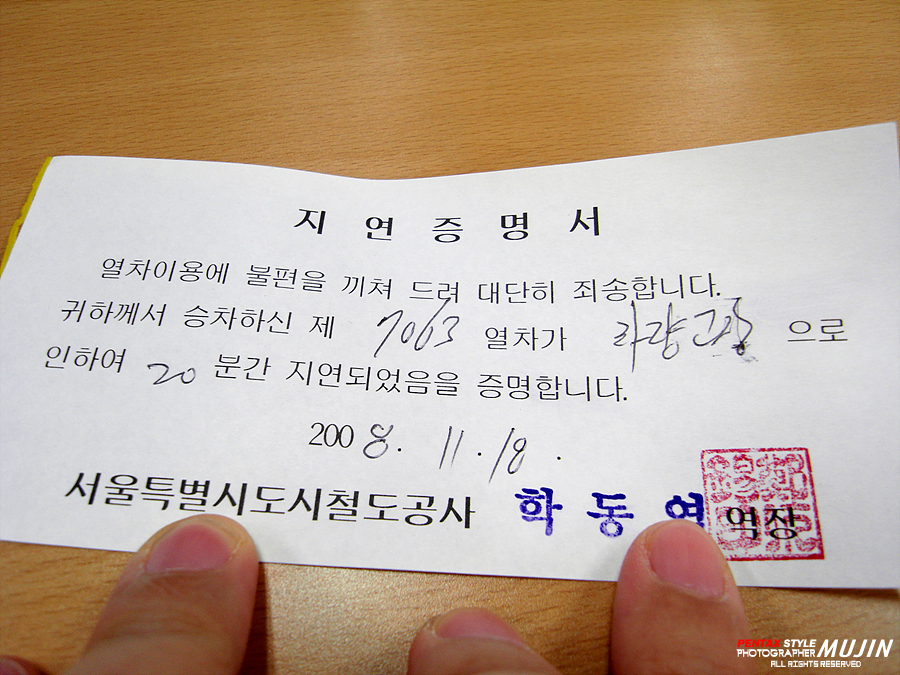 지연증명서
열차이용에 불편을 끼쳐 드려 대단히 죄송합니다.
귀하께서 승차하신 제 7063 열차가 차량고장 으로
인하여 20 분간 지연되었음을 증명합니다.
2008. 11. 18.
서울특별시도시철도공사 학동역 역장
PENTAX STYLE
PHOTOGRAPHER MUJIN
ALL RIGHTS RESERVED